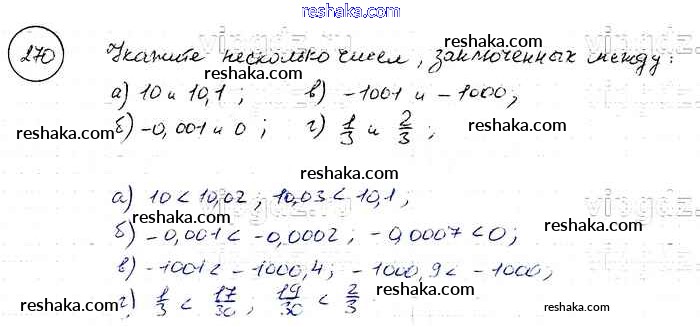 reshaka.com
270 Укажите несколько чисел, заключенных между:
reshaka.com
а) 10 и 10,1; в) -1001 и -1000;
reshaka.com reshaka.com
б) -0,001 и 0; г) 1/3 и 2/3;
reshaka.com
а) 10 < 10,02; 10,03 < 10,1;
reshaka.com
б) -0,001 < -0,0002; -0,0007 < 0;
reshaka.com reshaka.com
в) -1001 < -1000,4; -1000,9 < -1000;
г) 1/3 < 17/30; 19/30 < 2/3
reshaka.com